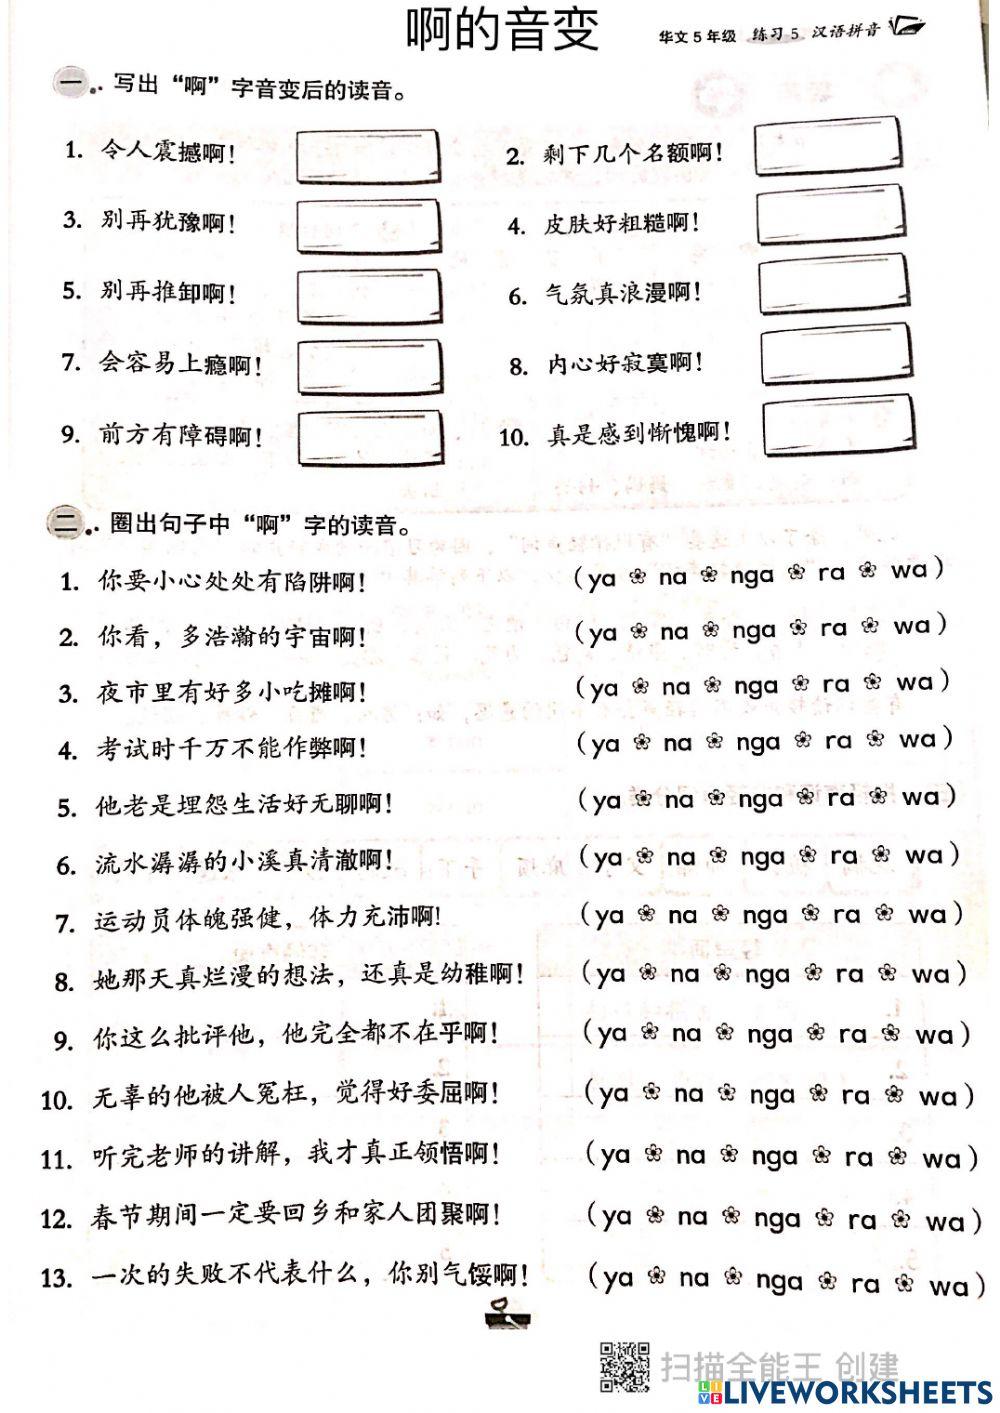 啊的音变
华文5年级 练习5 汉语拼音
一. 写出“啊”字音变后的读音。
1. 令人震撼啊！
2. 剩下几个名额啊！
3. 别再犹豫啊！
4. 皮肤好粗糙啊！
5. 别再推卸啊！
6. 气氛真浪漫啊！
7. 会容易上瘾啊！
8. 内心好寂寞啊！
9. 前方有障碍啊！
10. 真是感到惭愧啊！
二. 圈出句子中“啊”字的读音。
1. 你要小心处处有陷阱啊！ (ya ❀ na ❀ nga ❀ ra ❀ wa)
2. 你看，多浩瀚的宇宙啊！ (ya ❀ na ❀ nga ❀ ra ❀ wa)
3. 夜市里有好多小吃摊啊！ (ya ❀ na ❀ nga ❀ ra ❀ wa)
4. 考试时千万不能作弊啊！ (ya ❀ na ❀ nga ❀ ra ❀ wa)
5. 他老是埋怨生活好无聊啊！ (ya ❀ na ❀ nga ❀ ra ❀ wa)
6. 流水潺潺的小溪真清澈啊！ (ya ❀ na ❀ nga ❀ ra ❀ wa)
7. 运动员体魄强健，体力充沛啊! (ya ❀ na ❀ nga ❀ ra ❀ wa)
8. 她那天真烂漫的想法，还真是幼稚啊！ (ya ❀ na ❀ nga ❀ ra ❀ wa)
9. 你这么批评他，他完全都不在乎啊！ (ya ❀ na ❀ nga ❀ ra ❀ wa)
10. 无辜的他被人冤枉，觉得好委屈啊！ (ya ❀ na ❀ nga ❀ ra ❀ wa)
11. 听完老师的讲解，我才真正领悟啊！ (ya ❀ na ❀ nga ❀ ra ❀ wa)
12. 春节期间一定要回乡和家人团聚啊！ (ya ❀ na ❀ nga ❀ ra ❀ wa)
13. 一次的失败不代表什么，你别气馁啊！ (ya ❀ na ❀ nga ❀ ra ❀ wa)
扫描全能王 创建
LIVEWORKSHEETS